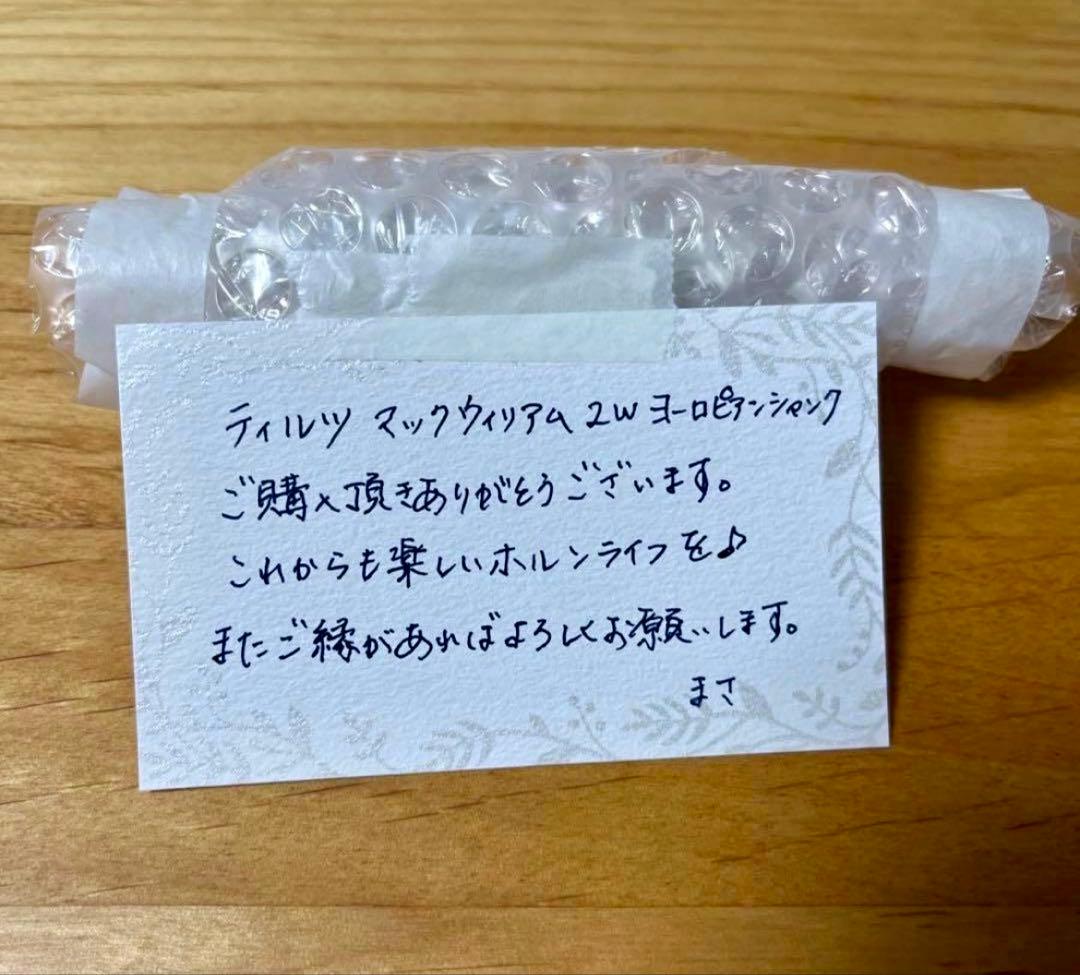 ティルツ マックウィリアム 2W ヨーロピアンシャンク
ご購入頂きありがとうございます。
これからも楽しいホルンライフを♪
またご縁があればよろしくお願いします。
まさ